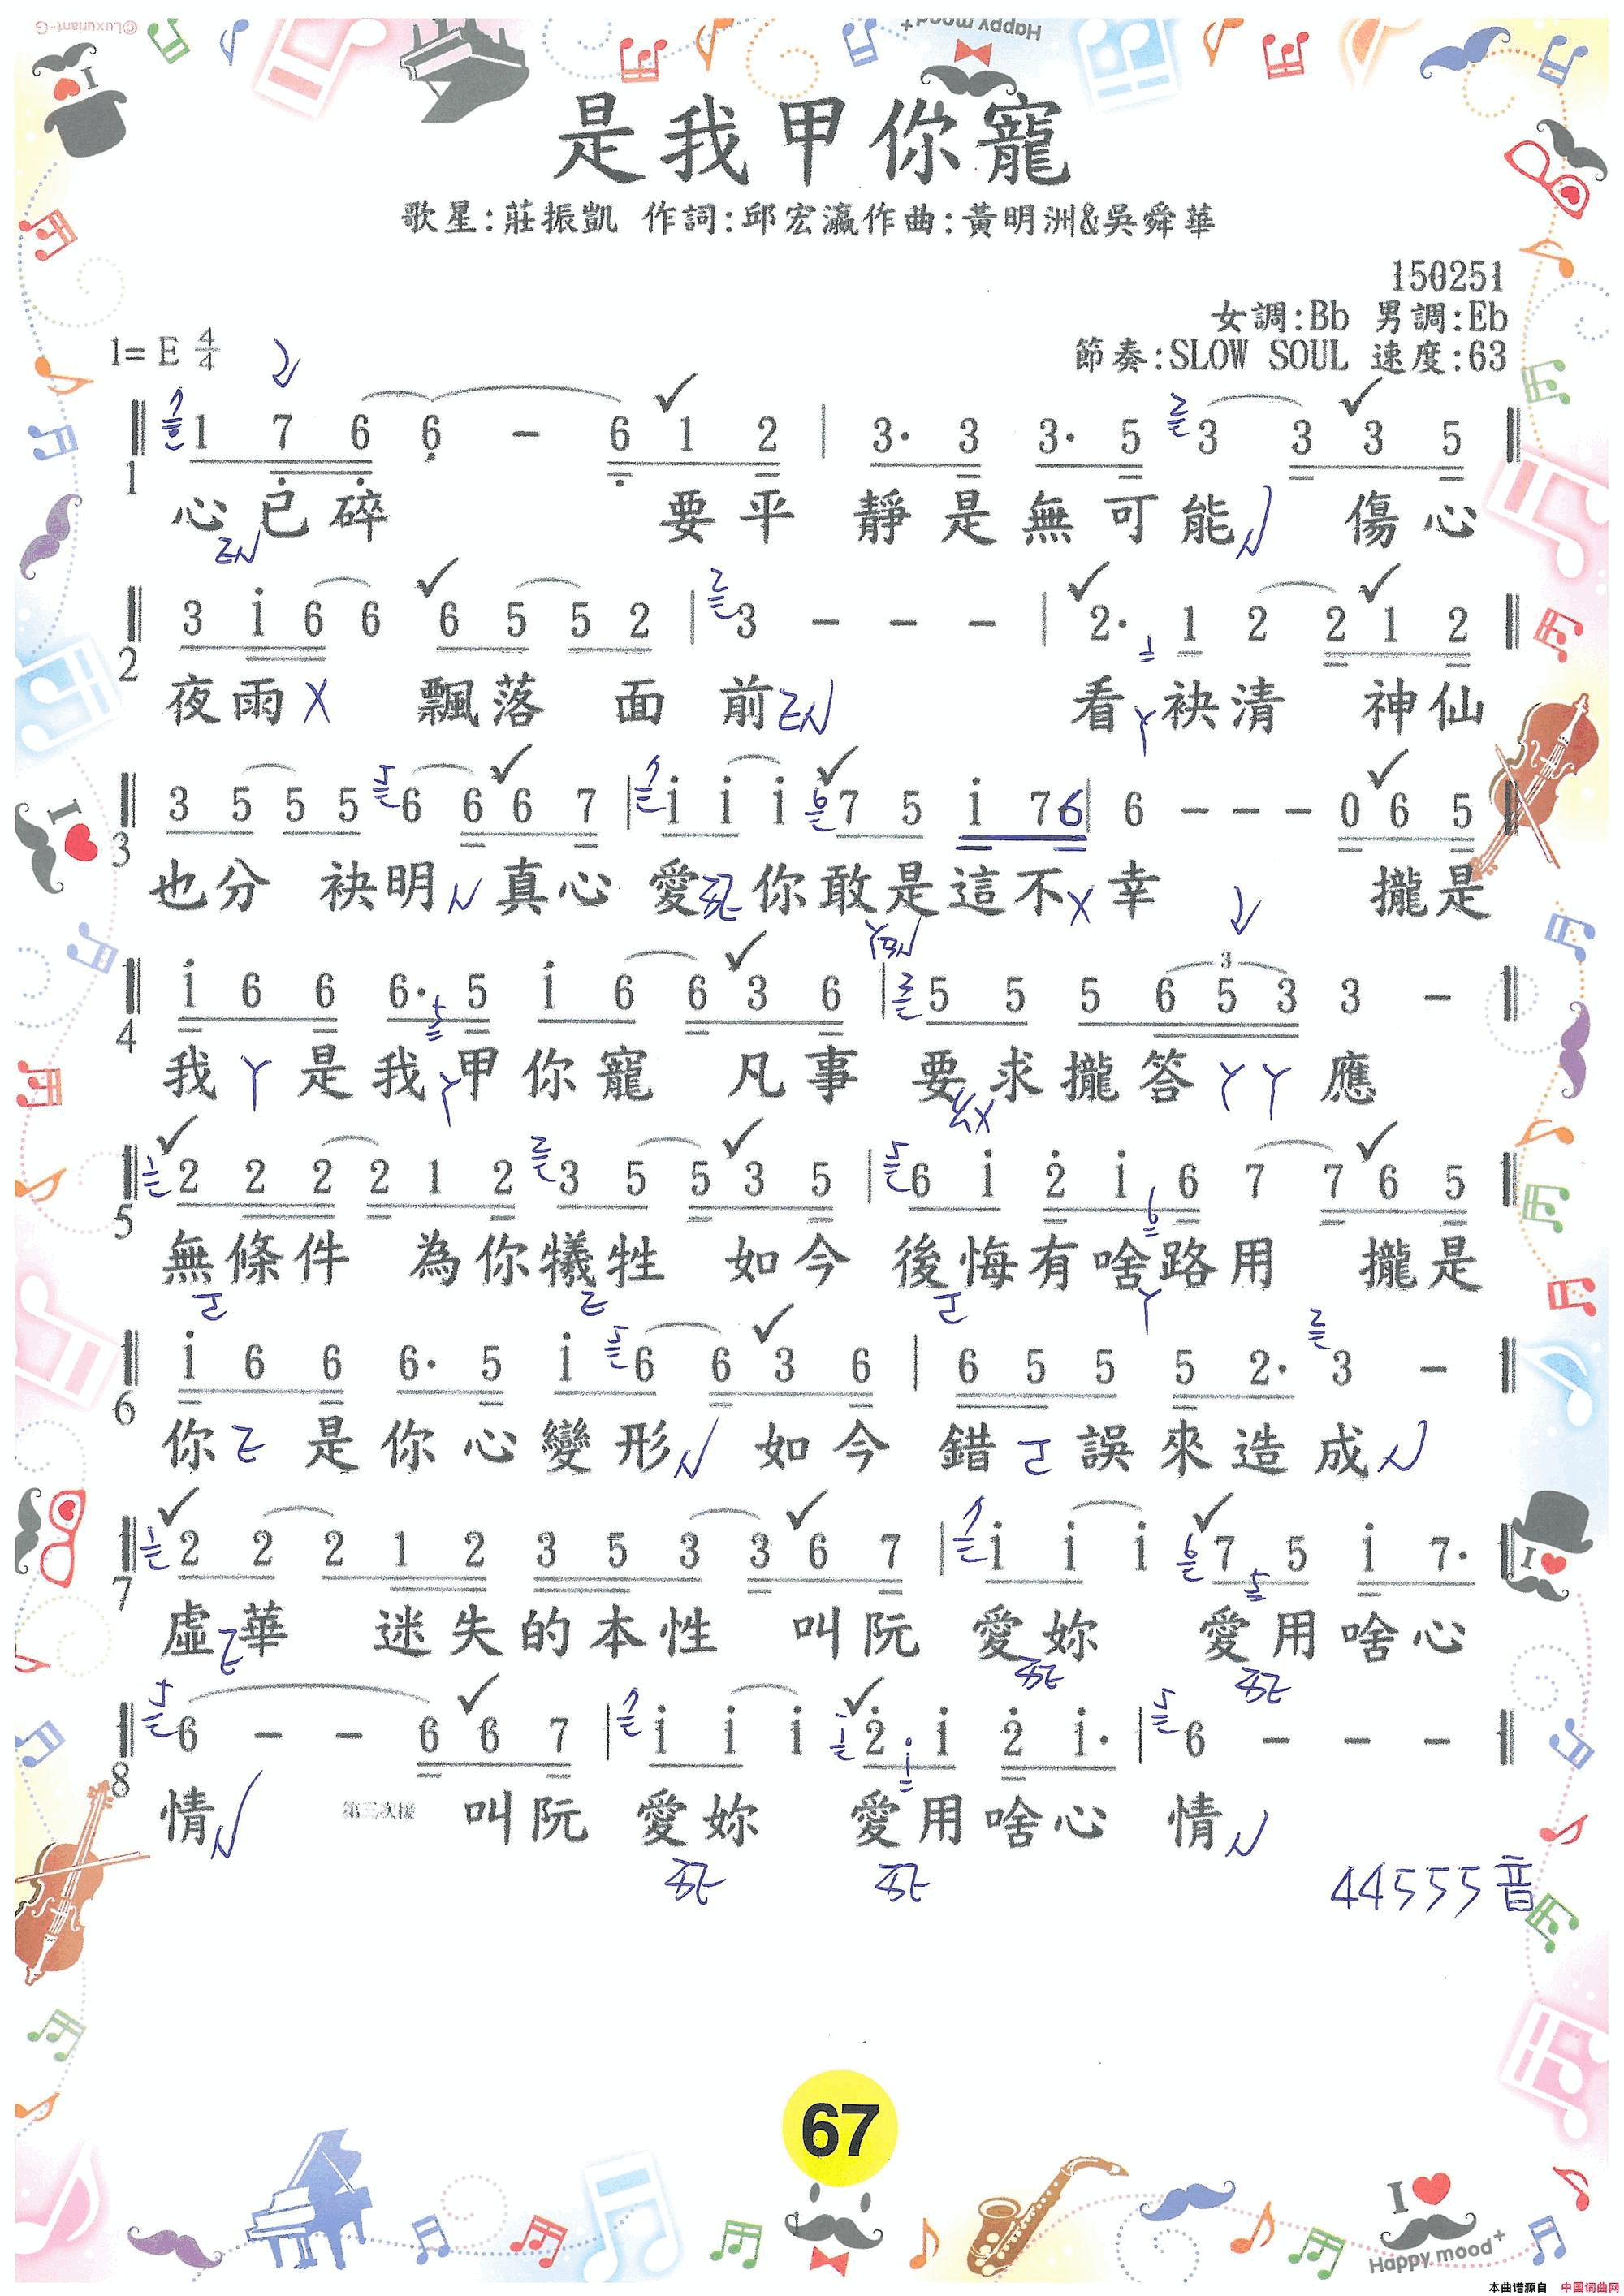 是我甲你寵
歌星:莊振凱 作詞:邱宏瀛作曲:黃明洲&吳舜華
150251
女調:Bb 男調:Eb
1= E 4/4
節奏:SLOW SOUL 速度:63
1 7 6 6 - 6 1 2 | 3· 3 3· 5 3 3 3 5
1
心已碎 要平 靜是無可能 傷心
3 i 6 6 6 5 5 2 | 3 - - - | 2· 1 2 2 1 2
2
夜雨 飄落 面 前 看 袂清 神仙
3 5 5 5 6 6 6 7 | i i i 7 5 i 7 6 | 6 - - - 0 6 5
3
也分 袂明 真心 愛 你敢是這不 幸 攏是
i 6 6 6· 5 i 6 6 3 6 | 5 5 5 6 5 3 3 -
4
我 是我 甲你寵 凡事 要 求攏答 應
2 2 2 2 1 2 3 5 5 3 5 | 6 i 2 i 6 7 7 6 5
5
無條件 為你犧牲 如今 後悔有啥路用 攏是
i 6 6 6· 5 i 6 6 3 6 | 6 5 5 5 2· 3 -
6
你 是你心變形 如今 錯 誤來造成
2 2 2 1 2 3 5 3 3 6 7 | i i i 7 5 i 7·
7
虛華 迷失的本性 叫阮 愛妳 愛用啥心
6 - - 6 6 7 | i i i 2 i 2 i· | 6 - - -
8
情 第三次接 叫阮 愛妳 愛用啥心 情
44555音
67
I
Happy mood+
本曲谱源自 中国词曲网